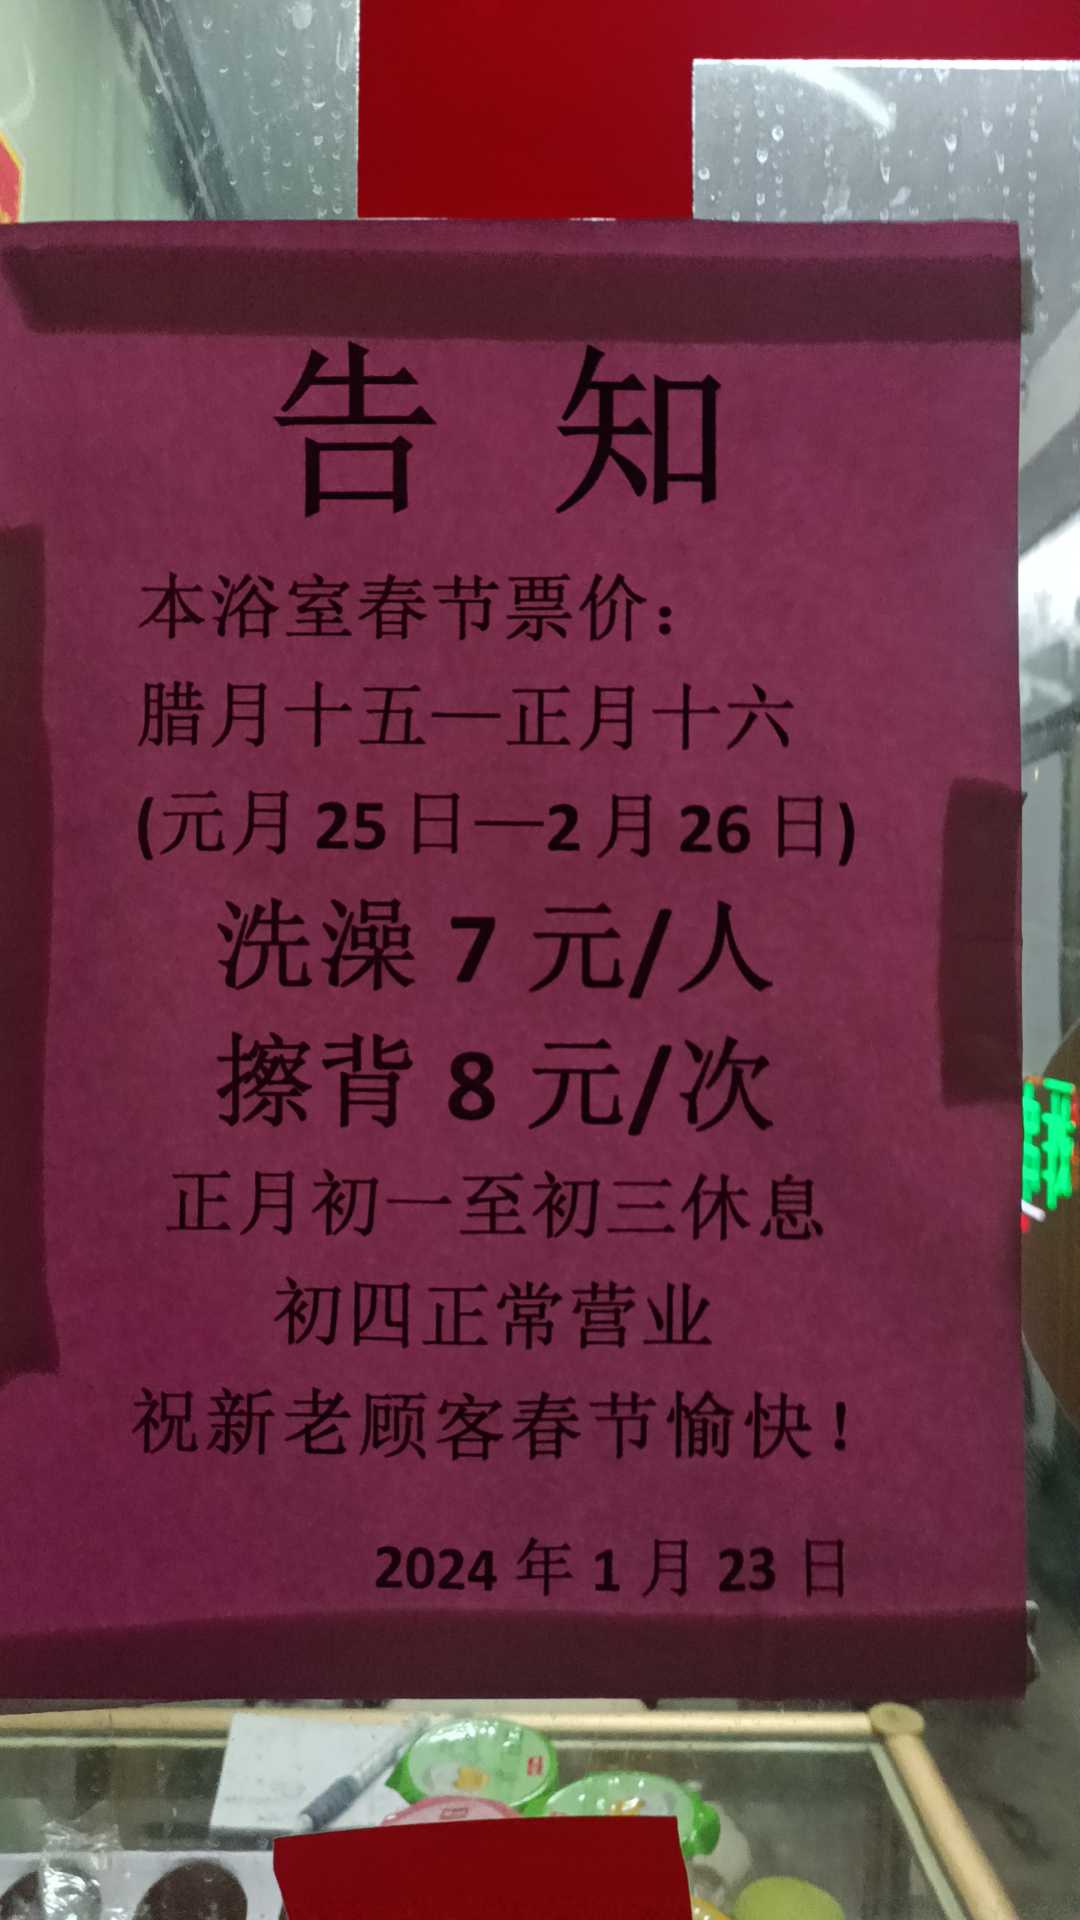 告知
本浴室春节票价：
腊月十五—正月十六
(元月25日—2月26日)
洗澡7元/人
擦背8元/次
正月初一至初三休息
初四正常营业
祝新老顾客春节愉快！
2024年1月23日